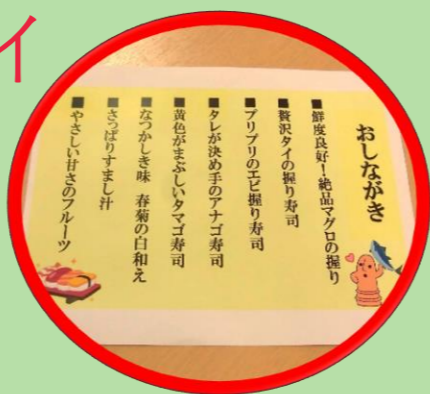 イ
おしながき
■鮮度良好!絶品マグロの握り
■贅沢タイの握り寿司
■プリプリのエビ握り寿司
■タレが決め手のアナゴ寿司
■黄色がまぶしいタマゴ寿司
■なつかしき味 春菊の白和え
■さっぱりすまし汁
■やさしい甘さのフルーツ